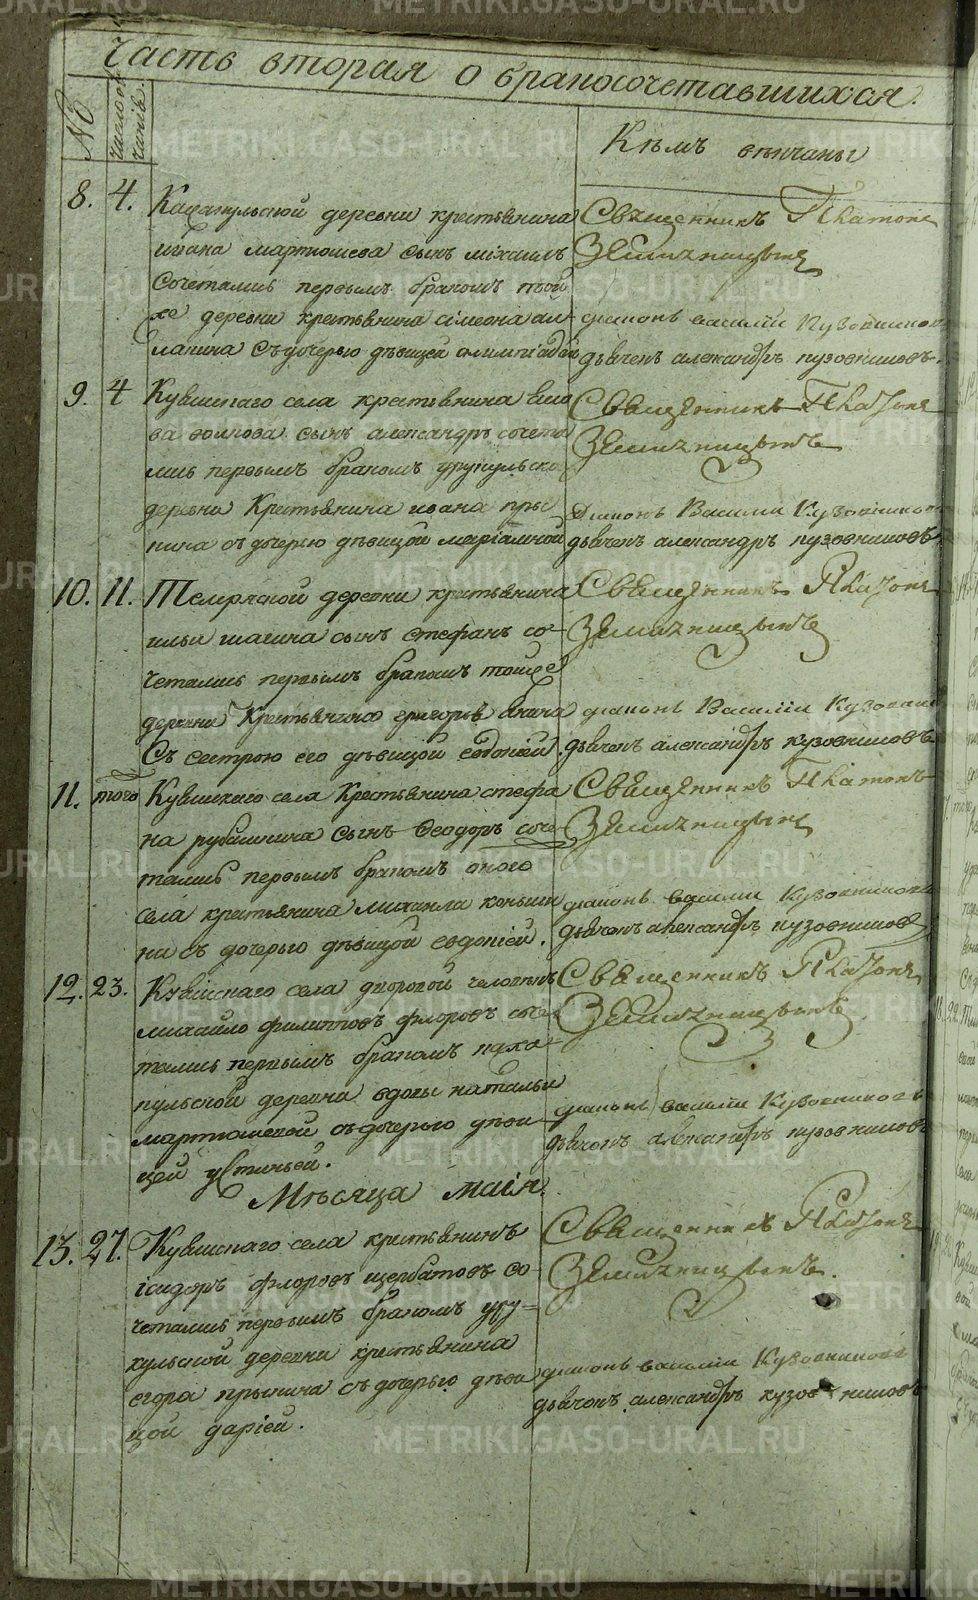 Часть вторая о бракосочетавшихся.
№
число бракъ
Кѣмъ вѣнчаны
8. 4. деревни крестьянина
ивана мартюшева сынъ михаилъ
сочетались первымъ бракомъ той
же деревни крестьянина сімеона ал-
лапина съ дочерью дѣвицей
Священникъ Платонъ
Земляницынъ
діаконъ василіи Кузовников
дьячекъ александръ кузовниковъ.
9. 4 Кувшскаго села крестьянина
сынъ александръ сочета
лись первымъ бракомъ
деревни Крестьянина ивана пры
кина съ дочерью дѣвицой маріамной
Священникъ Платонъ
Земляницынъ
Діаконъ Василіи Кузовников
дьячекъ александръ кузовниковъ
10. 11. деревни крестьянина
ильи шагина сынъ стефанъ со-
четались первымъ бракомъ тойже
деревни Крестьянина григорья
Съ сестрою его дѣвицой евдокіей
Священникъ Платонъ
Земляницынъ
діаконъ Василіи Кузовник
дьячекъ александръ кузовниковъ
11. того Кувшскаго села Крестьянина стефа
на рубашкина Сынъ Ѳеодоръ соче-
тались первымъ бракомъ оного
села крестьянина михаила коньши
на съ дочерью дѣвицой евдокіей.
Священникъ Платонъ
Земляницынъ
діаконъ василіи Кузовников
дьячекъ александръ кузовников
12. 23. Кувшскаго села дворовой человѣкъ
михайло филипповъ флоровъ соче
тались первымъ бракомъ
кульской деревни вдовы натальи
мартюшевой съ дочерью дѣви
цей устиньей.
Священникъ Платонъ
Земляницынъ
діаконъ василіи Кузовниковъ
дьячокъ александръ кузовниковъ
Мѣсяца маія
13. 27. Кувшскаго села крестьянинъ
ісидоръ флоровъ щербатовъ со-
четались первымъ бракомъ уру-
кульской деревни крестьянина
егора прыкина съ дочерью дѣви
цой даріей.
Священникъ Платонъ
Земляницынъ.
діаконъ василіи Кузовниковъ
дьячокъ александръ кузовниковъ
METRIKI.GASO-URAL.RU